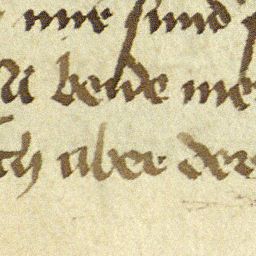 mir sind
beide me
ich uber der